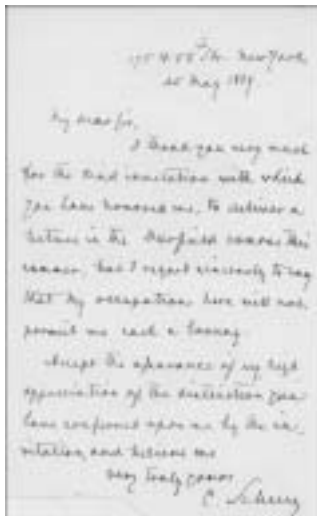 175 W. 58th St. New York
20 May 1889.
My dear Sir,
I thank you very much
for the kind invitation with which
you have honored me, to deliver a
lecture in the course this
summer, but I regret sincerely to say
that my occupations here will not
permit me such a
Accept the assurance of my high
appreciation of the distinction you
have conferred upon me by the in-
vitation, and believe me
very truly yours
C. Schurz